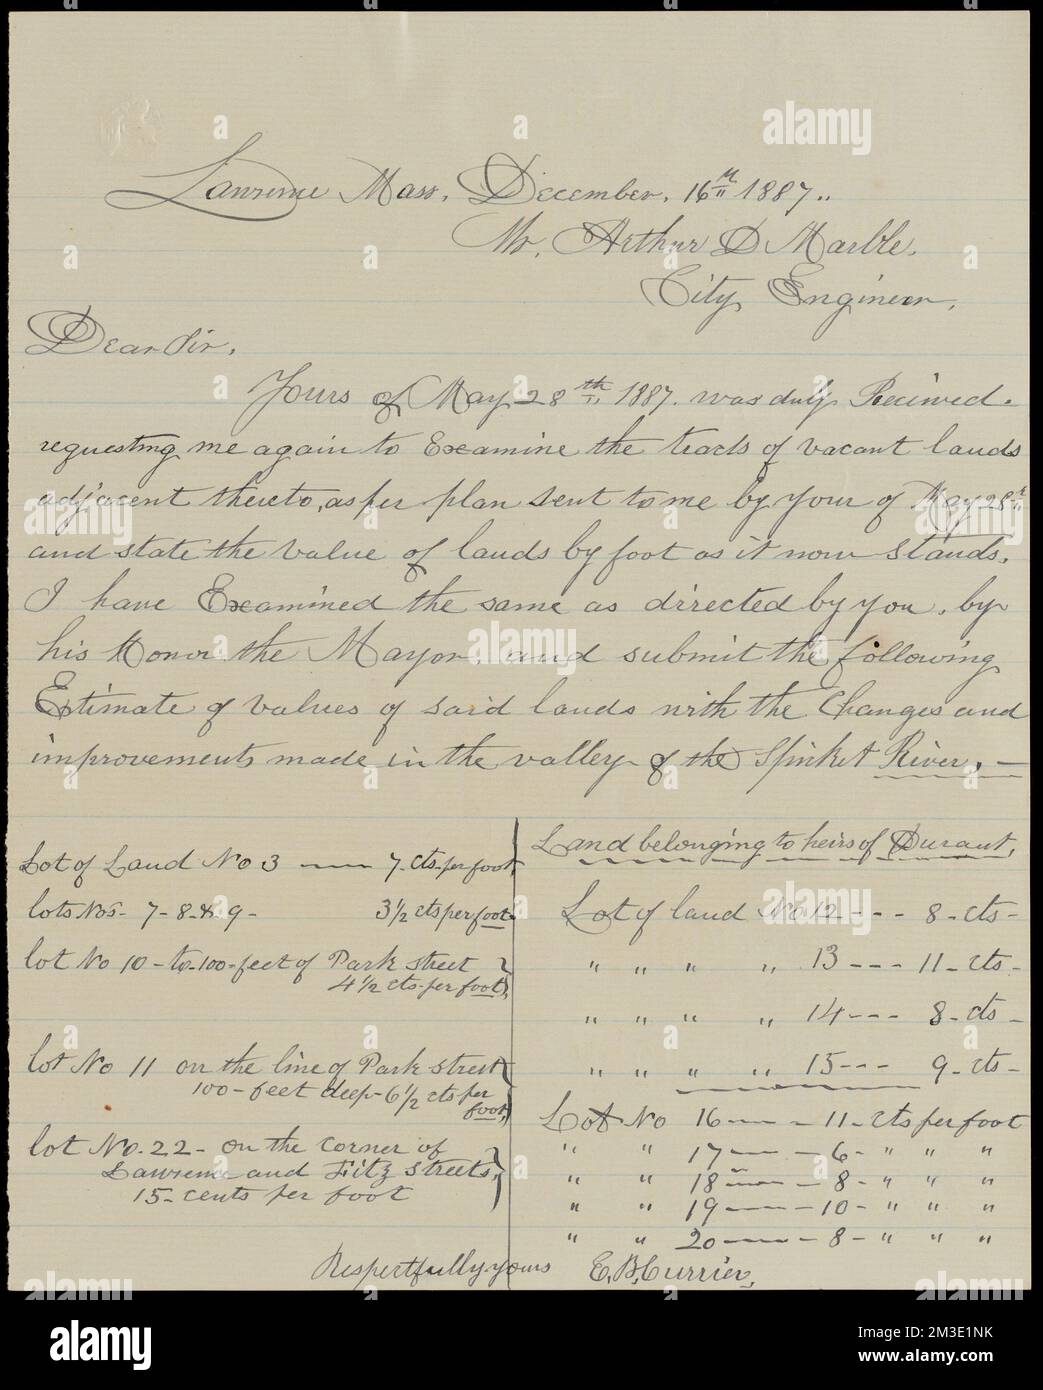 Lawrence Mass. December. 16th 1887.
Mr. Arthur D Marble.
City Engineer.
Dear Sir.
Yours of May 28th 1887. was duly Received.
requesting me again to Examine the tracts of vacant lands
adjacent thereto, as per plan sent to me by your of May 28th
and state the value of lands by foot as it now stands.
I have Examined the same as directed by you, by
his Honor the Mayor, and submit the following
Estimate of values of said lands with the Changes and
improvements made in the valley of the Spicket River. —
Lot of Land No 3 —— 7 cts. per foot,
lots Nos- 7-8-&-9- 3½ cts per foot-
lot No 10 - to-100-feet of Park street
4½ cts-per foot,
lot No 11 on the line of Park street
100-feet deep-6½ cts per
foot,
lot No. 22- on the corner of
Lawrence and Fitz streets,
15- cents per foot
Land belonging to heirs of Durant,
Lot of land No 12 --- 8- cts-
" " " " 13 --- 11- cts-
" " " " 14 --- 8- cts-
" " " " 15 --- 9- cts-
Lot No 16 —— 11- cts per foot
" " 17 —— 6- " " "
" " 18 —— 8- " " "
" " 19 —— 10- " " "
" " 20 —— 8- " " "
Respectfully yours E. B. Currier,
alamy
Image ID: 2M3E1NK
www.alamy.com